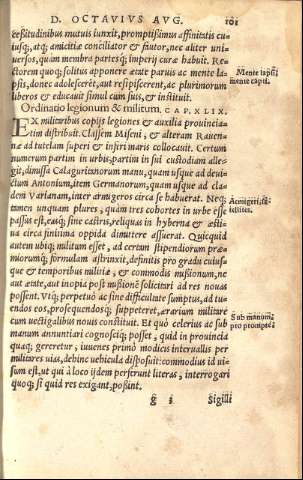 D. OCTAVIUS AVG. 101
cessitudinibus mutuis iunxit, promptissimus affinitatis cu
iusq; atq; amicitiæ conciliator & fautor, nec aliter uni-
uersos, quàm membra partesq; imperij curæ habuit. Re-
ctorem quoq; solitus apponere ætate paruis ac mente la-
psis, donec adolescerent, aut resipiscerent, ac plurimorum
liberos & educauit simul cum suis, & instituit.
Mente lapsi
mente capti.
Ordinatio legionum & militum. CAP. XLIX.
EX militaribus copijs legiones & auxilia prouincia-
tim distribuit. Classem Miseni, & alteram Rauen-
næ ad tutelam superi & inferi maris collocauit. Certum
numerum partim in urbis, partim in sui custodiam alle-
git, dimissa Calaguritanorum manu, quam usque ad de-
uictum Antonium, item Germanorum, quam usque ad cla
dem Varianam, inter armigeros circa se habuerat. Neq;
tamen unquam plures, quàm tres cohortes in urbe esse
passus est, easq; sine castris, reliquas in hyberna & æsti-
ua circa finitima oppida dimittere assuerat. Quicquid
autem ubiq; militum esset, ad certam stipendiorum præ-
miorumq; formulam astrinxit, definitis pro gradu cuiusq;
que & temporibus militiæ, & commodis missionum, ne
aut ætate, aut inopia post missionem solicitari ad res nouas
possent. Vtq; perpetuò ac sine difficultate sumptus, ad tu-
endos eos, prosequendosq; suppeteret, ærarium militare
cum uectigalibus nouis constituit. Et quò celerius ac sub
manum annuntiari cognosciq; posset, quid in prouincia
quaq; gereretur, iuuenes primò modicis interuallis per
militares uias, dehinc uehicula disposuit: commodius id ui-
sum est, ut qui à loco ijdem perferunt literas, interrogari
quoq; si quid res exigant, possint.
Armigeri, sa
tellites.
Sub manum,
pro promptè.
g i Sigilli